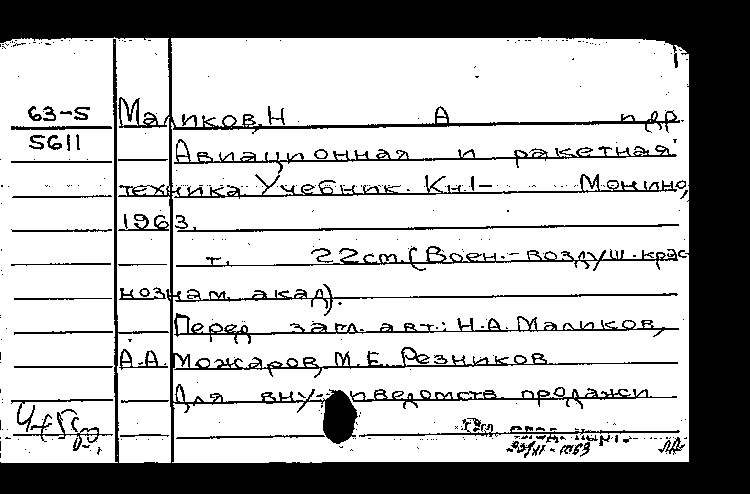 63-5 Маликов, Н А и др
5611 Авиационная и ракетная
техника Учебник. Кн.1- Монино,
1963.
т. 22см. (Воен.-воздуш. крас
нознам. акад).
Перед загл. авт.: Н.А. Маликов,
А.А. Можаров, М.Е. Резников
Для продажи